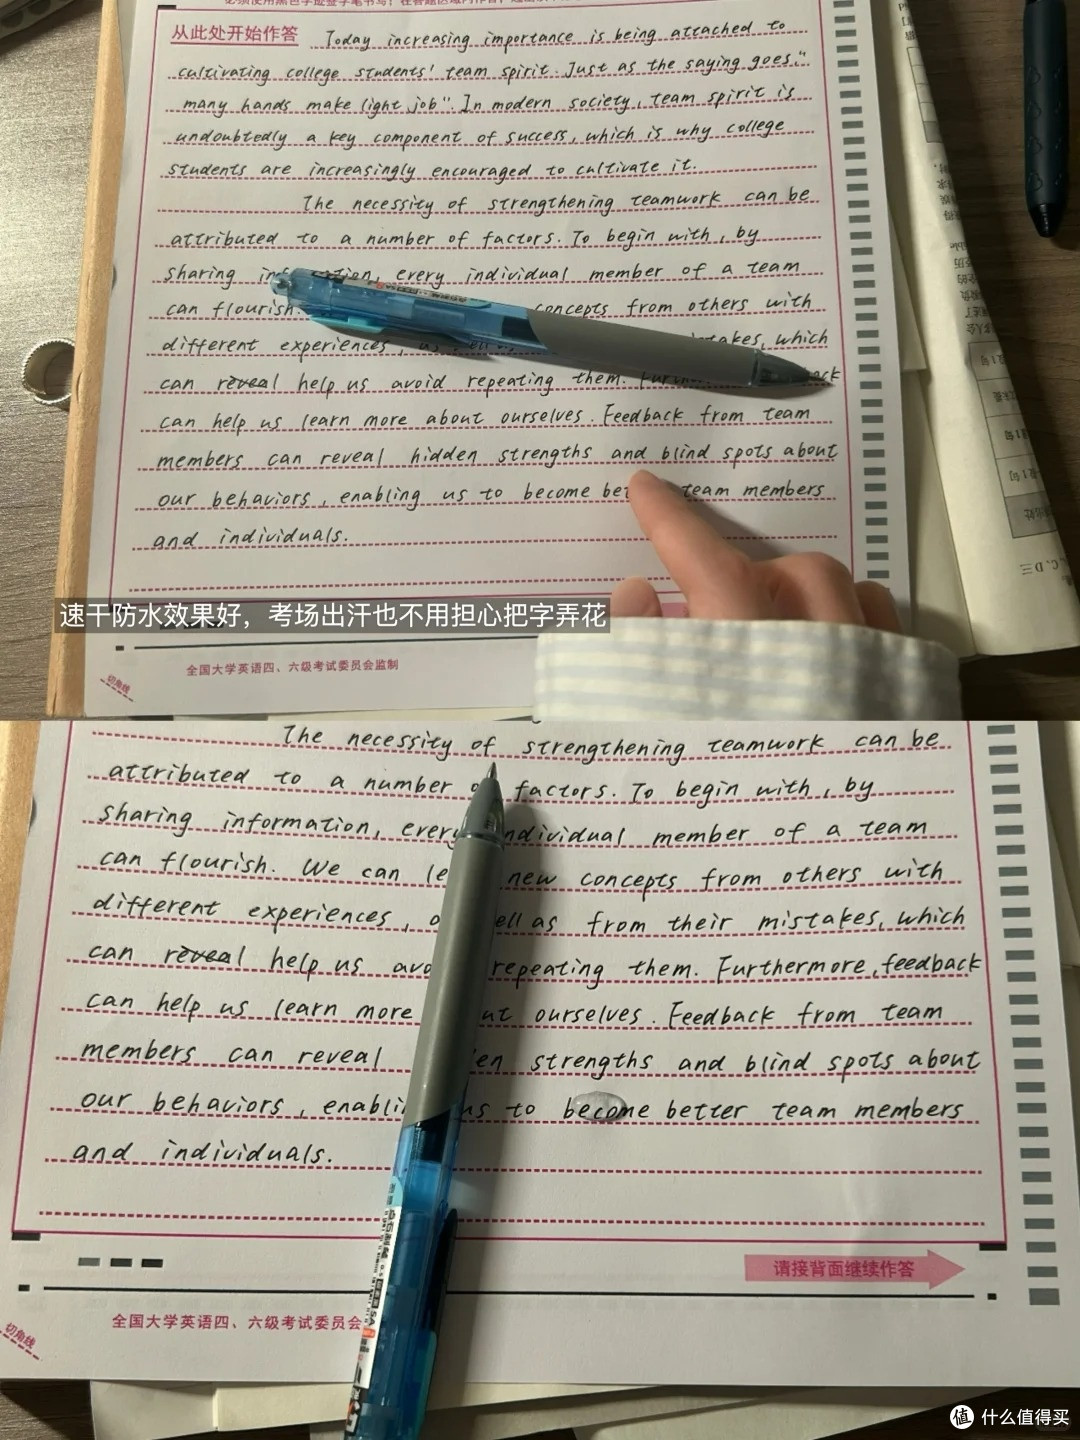 从此处开始作答 Today increasing importance is being attached to
cultivating college students' team spirit. Just as the saying goes,"
many hands make light job". In modern society, team spirit is
undoubtedly a key component of success, which is why college
students are increasingly encouraged to cultivate it.
The necessity of strengthening teamwork can be
attributed to a number of factors. To begin with, by
sharing information, every individual member of a team
can flourish. concepts from others with
different experiences, which
can reveal help us avoid repeating them.
can help us learn more about ourselves. Feedback from team
members can reveal hidden strengths and blind spots about
our behaviors, enabling us to become team members
and individuals.
速干防水效果好，考场出汗也不用担心把字弄花
全国大学英语四、六级考试委员会监制
切角线
The necessity of strengthening teamwork can be
attributed to a number factors. To begin with, by
sharing information, every individual member of a team
can flourish. We can new concepts from others with
different experiences, as from their mistakes, which
can reveal help us repeating them. Furthermore, feedback
can help us learn more ourselves. Feedback from team
members can reveal strengths and blind spots about
our behaviors, us to become better team members
and individuals.
请接背面继续作答
全国大学英语四、六级考试委员会
切角线
值 什么值得买